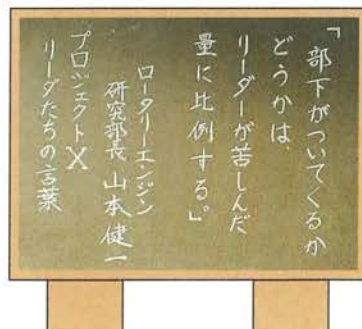 「部下がついてくるか
どうかは、
リーダーが苦しんだ
量に比例する。」
ロータリーエンジン
研究部長 山本健一
プロジェクトX
リーダたちの言葉